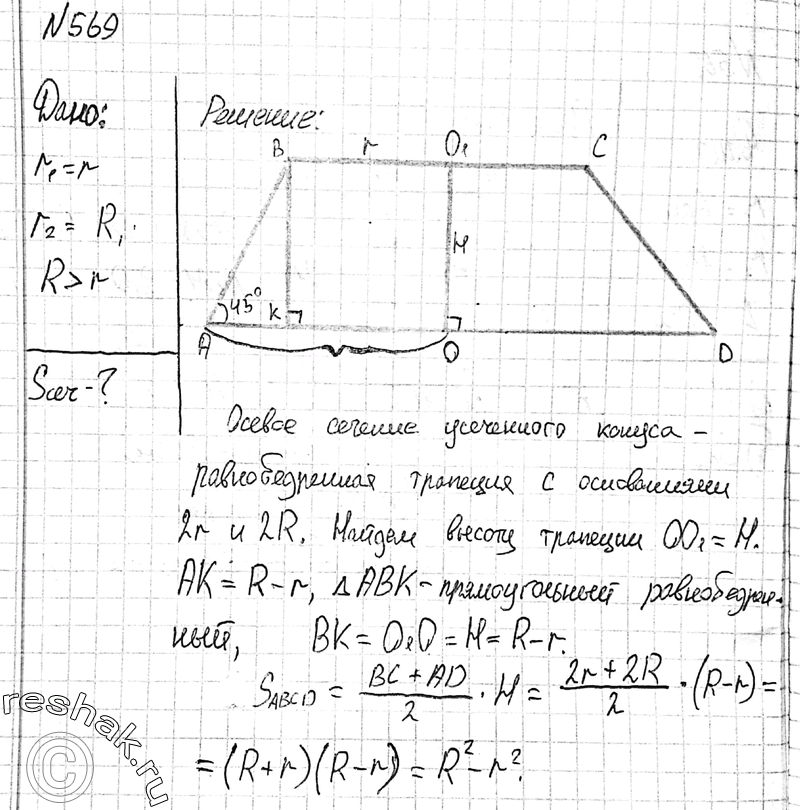 N569
Дано:
r₁ = r
r₂ = R,
R > r
Sсеч - ?
Решение:
B r O₁ C
H
45° K
A O D
Осевое сечение усеченного конуса -
равнобедренная трапеция с основаниями
2r и 2R. Найдем высоту трапеции OO₁ = H.
AK = R - r, ΔABK - прямоугольный равнобедрен-
ный, BK = O₁O = H = R - r.
S_ABCD = (BC + AD)/2 · H = (2r + 2R)/2 · (R - r) =
= (R + r)(R - r) = R² - r².
reshak.ru
©